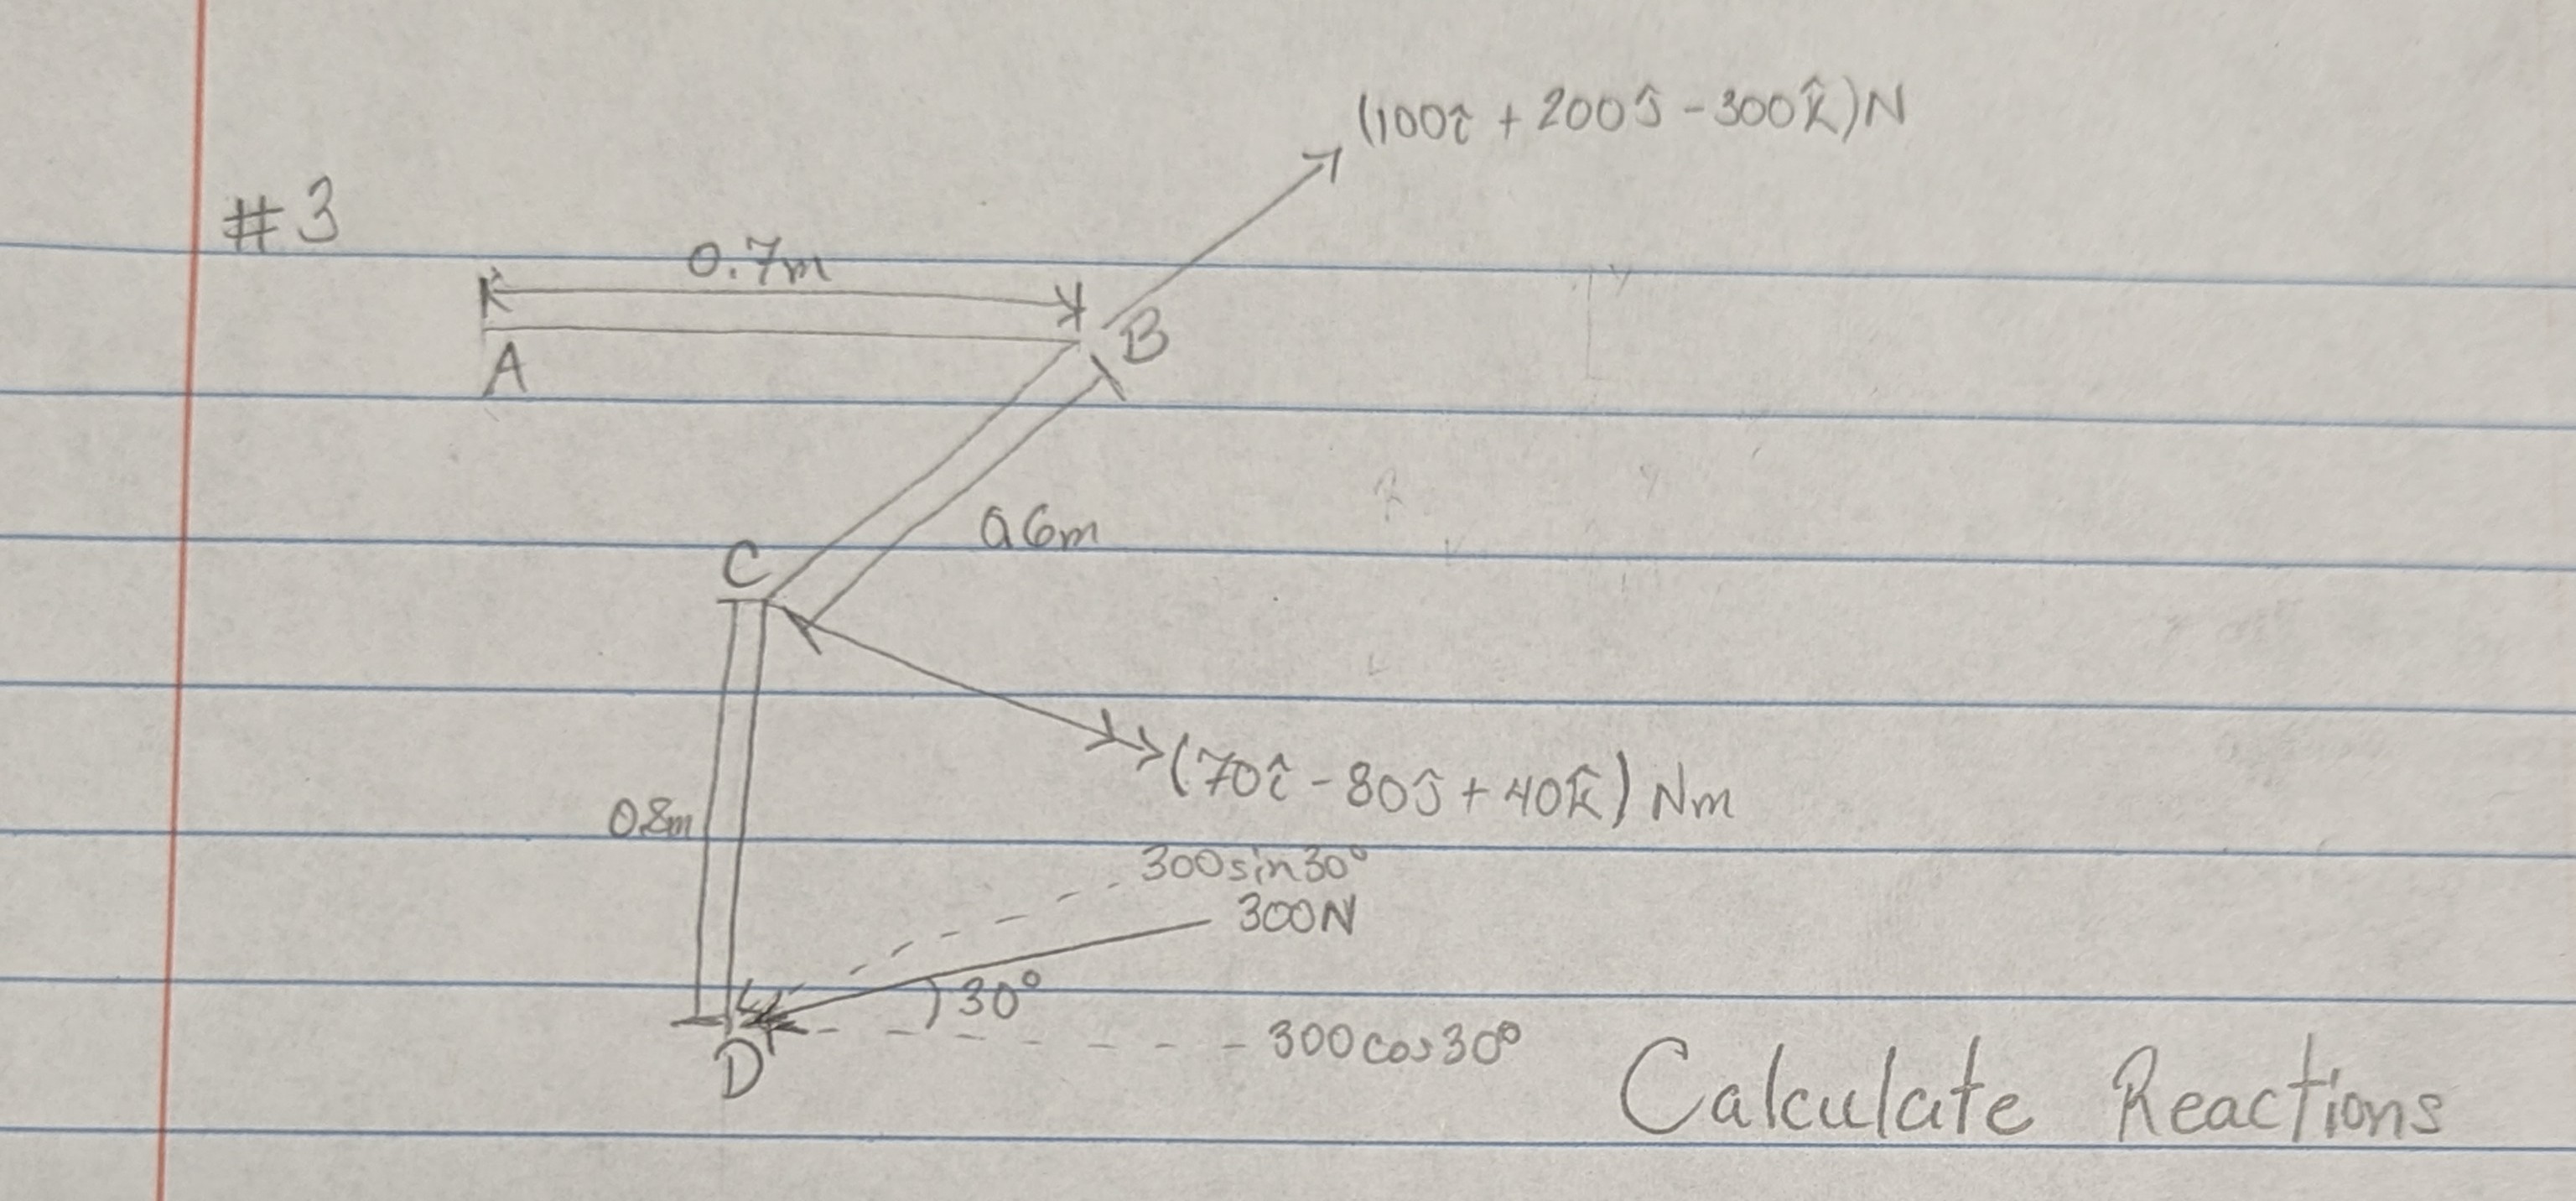 (100î + 200ĵ - 300k̂)N
#3
0.7m
A
B
0.6m
C
(70î - 80ĵ + 40k̂) Nm
0.8m
300sin30°
300N
30°
D
300cos30°
Calculate Reactions